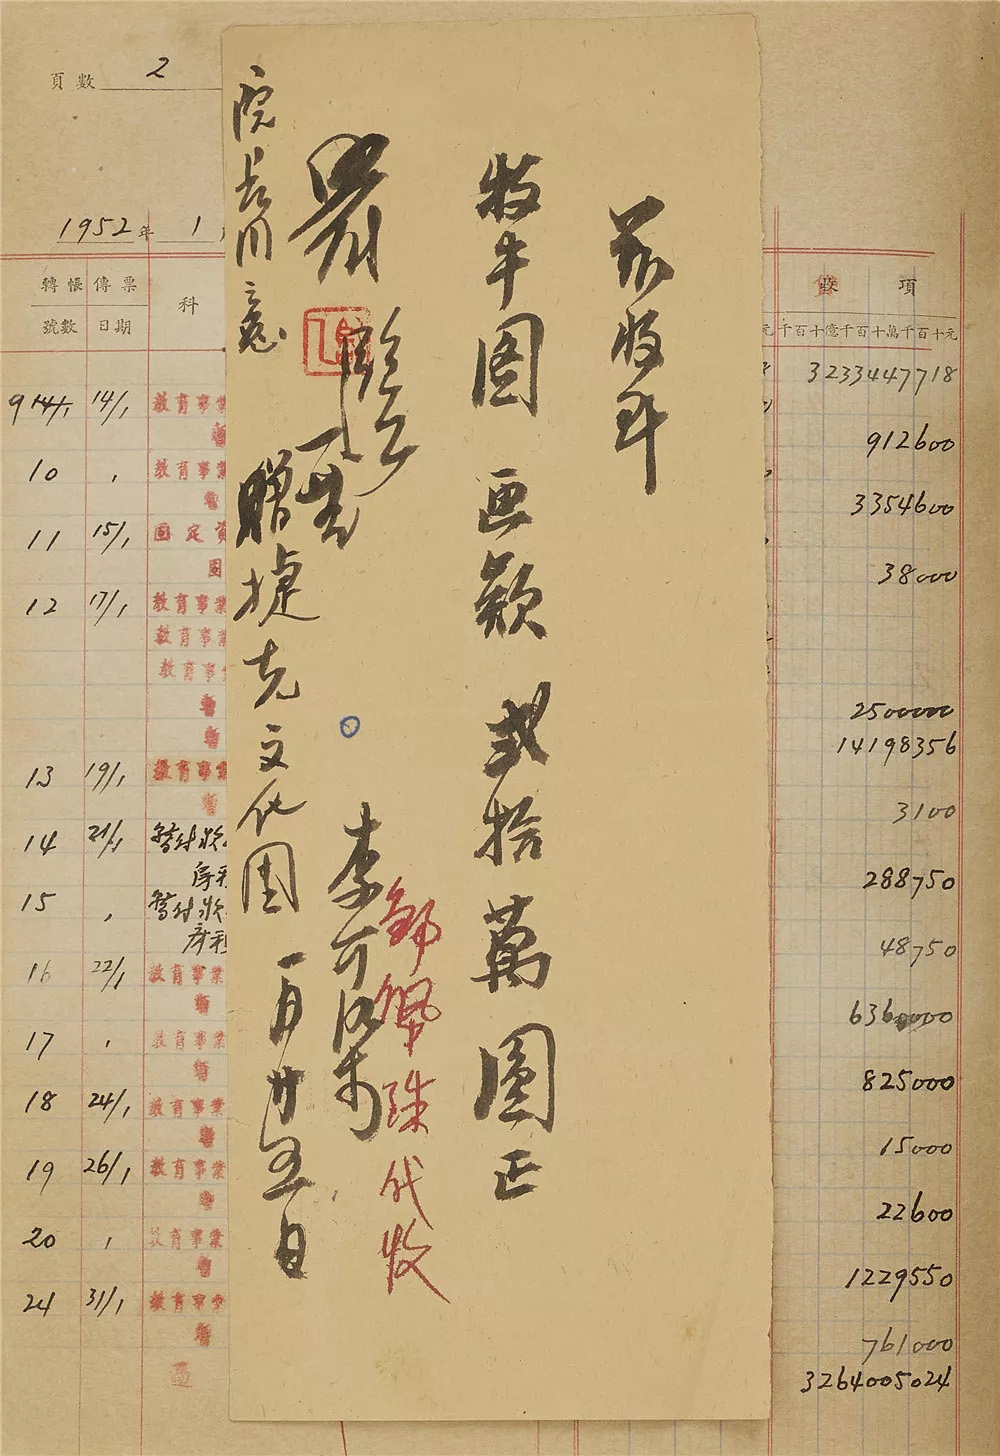 茲收到
牧牛圖 画欵 弍拾萬圓正
鄒佩珠代收
李可染
一月廿五日
院長同意
贈捷克文化團
頁數 2
1952年 1
轉帳 傳票 科
號數 日期
項
元 千百十億千百十萬千百十元
3233447718
914/1 14/1 教育事業
912600
10 , 教育事業
3354600
11 15/1 固定資
38000
12 17/1 教育事業
教育事業
教育事
2500000
14198356
13 19/1 教育事業
3100
14 21/1 暫付款
288750
15 , 暫付款
48750
16 22/1 教育事業
6360000
17 , 教育事業
825000
18 24/1 教育事業
15000
19 26/1 教育事業
22600
20 , 教育事業
1229550
24 31/1 教育事業
761000
3264005024